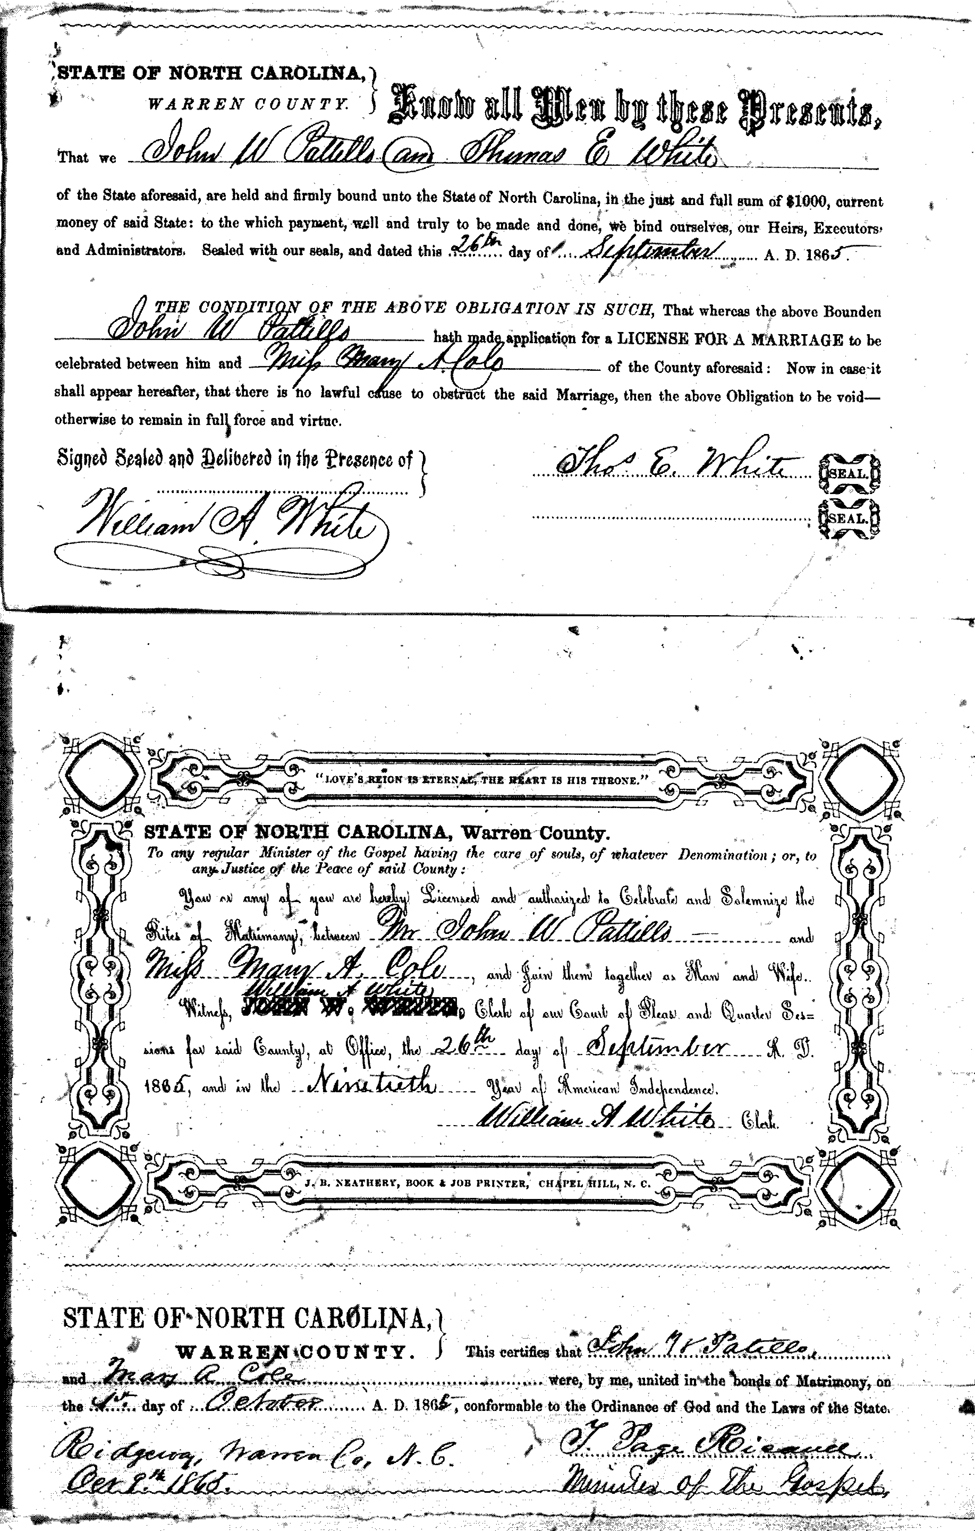 STATE OF NORTH CAROLINA,
WARREN COUNTY.
Know all Men by these Presents,
That we John W Pattillo and Thomas E White
of the State aforesaid, are held and firmly bound unto the State of North Carolina, in the just and full sum of $1000, current
money of said State: to the which payment, well and truly to be made and done, we bind ourselves, our Heirs, Executors
and Administrators. Sealed with our seals, and dated this 26th day of September A. D. 1865.
THE CONDITION OF THE ABOVE OBLIGATION IS SUCH, That whereas the above Bounden
John W Pattillo hath made application for a LICENSE FOR A MARRIAGE to be
celebrated between him and Miss Mary A. Cole of the County aforesaid: Now in case it
shall appear hereafter, that there is no lawful cause to obstruct the said Marriage, then the above Obligation to be void—
otherwise to remain in full force and virtue.
Signed Sealed and Delibered in the Presence of
Thos E. White SEAL.
William A. White
SEAL.
"LOVE'S REIGN IS ETERNAL, THE HEART IS HIS THRONE."
STATE OF NORTH CAROLINA, Warren County.
To any regular Minister of the Gospel having the care of souls, of whatever Denomination; or, to
any Justice of the Peace of said County:
You or any of you are hereby Licensed and authorized to Celebrate and Solemnize the
Rites of Matrimony, between Mr John W Pattillo — and
Miss Mary A. Cole, and Join them together as Man and Wife.
William A White
Witness, JOHN W. Clerk of our Court of Pleas and Quarter Ses=
sions for said County, at Office, the 26th day of September A. D.
1865, and in the Ninetieth Year of American Independence.
William A White Clerk.
J. B. NEATHERY, BOOK & JOB PRINTER, CHAPEL HILL, N. C.
STATE OF NORTH CAROLINA,
WARREN COUNTY.
This certifies that John W Patillo,
and Mary A Cole were, by me, united in the bonds of Matrimony, on
the day of October A. D. 1865, conformable to the Ordinance of God and the Laws of the State.
Ridgeway, Warren Co, N. C. T Page
1865. Minister of The Gospel,